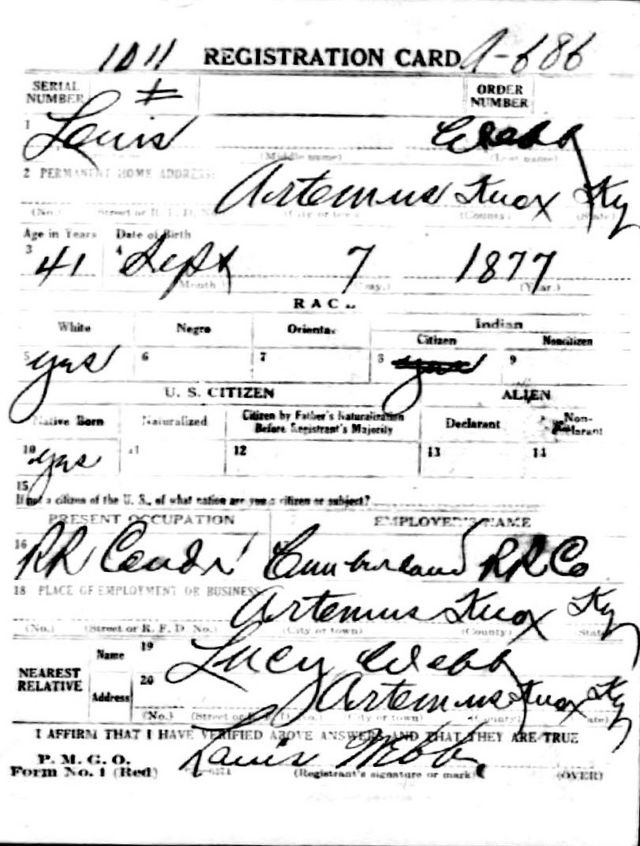 1011 REGISTRATION CARD A-686
SERIAL NUMBER ORDER NUMBER
1 Louis Webb
(Middle name) (Last name)
2 PERMANENT HOME ADDRESS:
Artemus Knox Ky
(No.) (Street or R. F. D. No.) (City or town) (County) (State)
Age in Years Date of Birth
3 41 4 Sept 7 1877
(Month.) (Day.) (Year.)
RACE
White Negro Oriental Indian
Citizen Noncitizen
5 yas 6 7 8 9
U. S. CITIZEN ALIEN
Native Born Naturalized Citizen by Father's Naturalization Before Registrant's Majority Declarant Non-declarant
10 yas 11 12 13 14
15
If not a citizen of the U. S., of what nation are you a citizen or subject?
PRESENT OCCUPATION EMPLOYER'S NAME
16 RR Condr Cumberland RR Co
18 PLACE OF EMPLOYMENT OR BUSINESS
Artemus Knox Ky
(No.) (Street or R. F. D. No.) (City or town) (County) (State)
NEAREST RELATIVE
Name 19 Lucy Webb
Address 20 Artemus Knox Ky
(No.) (City or town) (County) (State)
I AFFIRM THAT I HAVE VERIFIED ABOVE ANSWERS AND THAT THEY ARE TRUE
P. M. G. O.
Form No. 1 (Red) Louis Webb
(Registrant's signature or mark) (OVER)